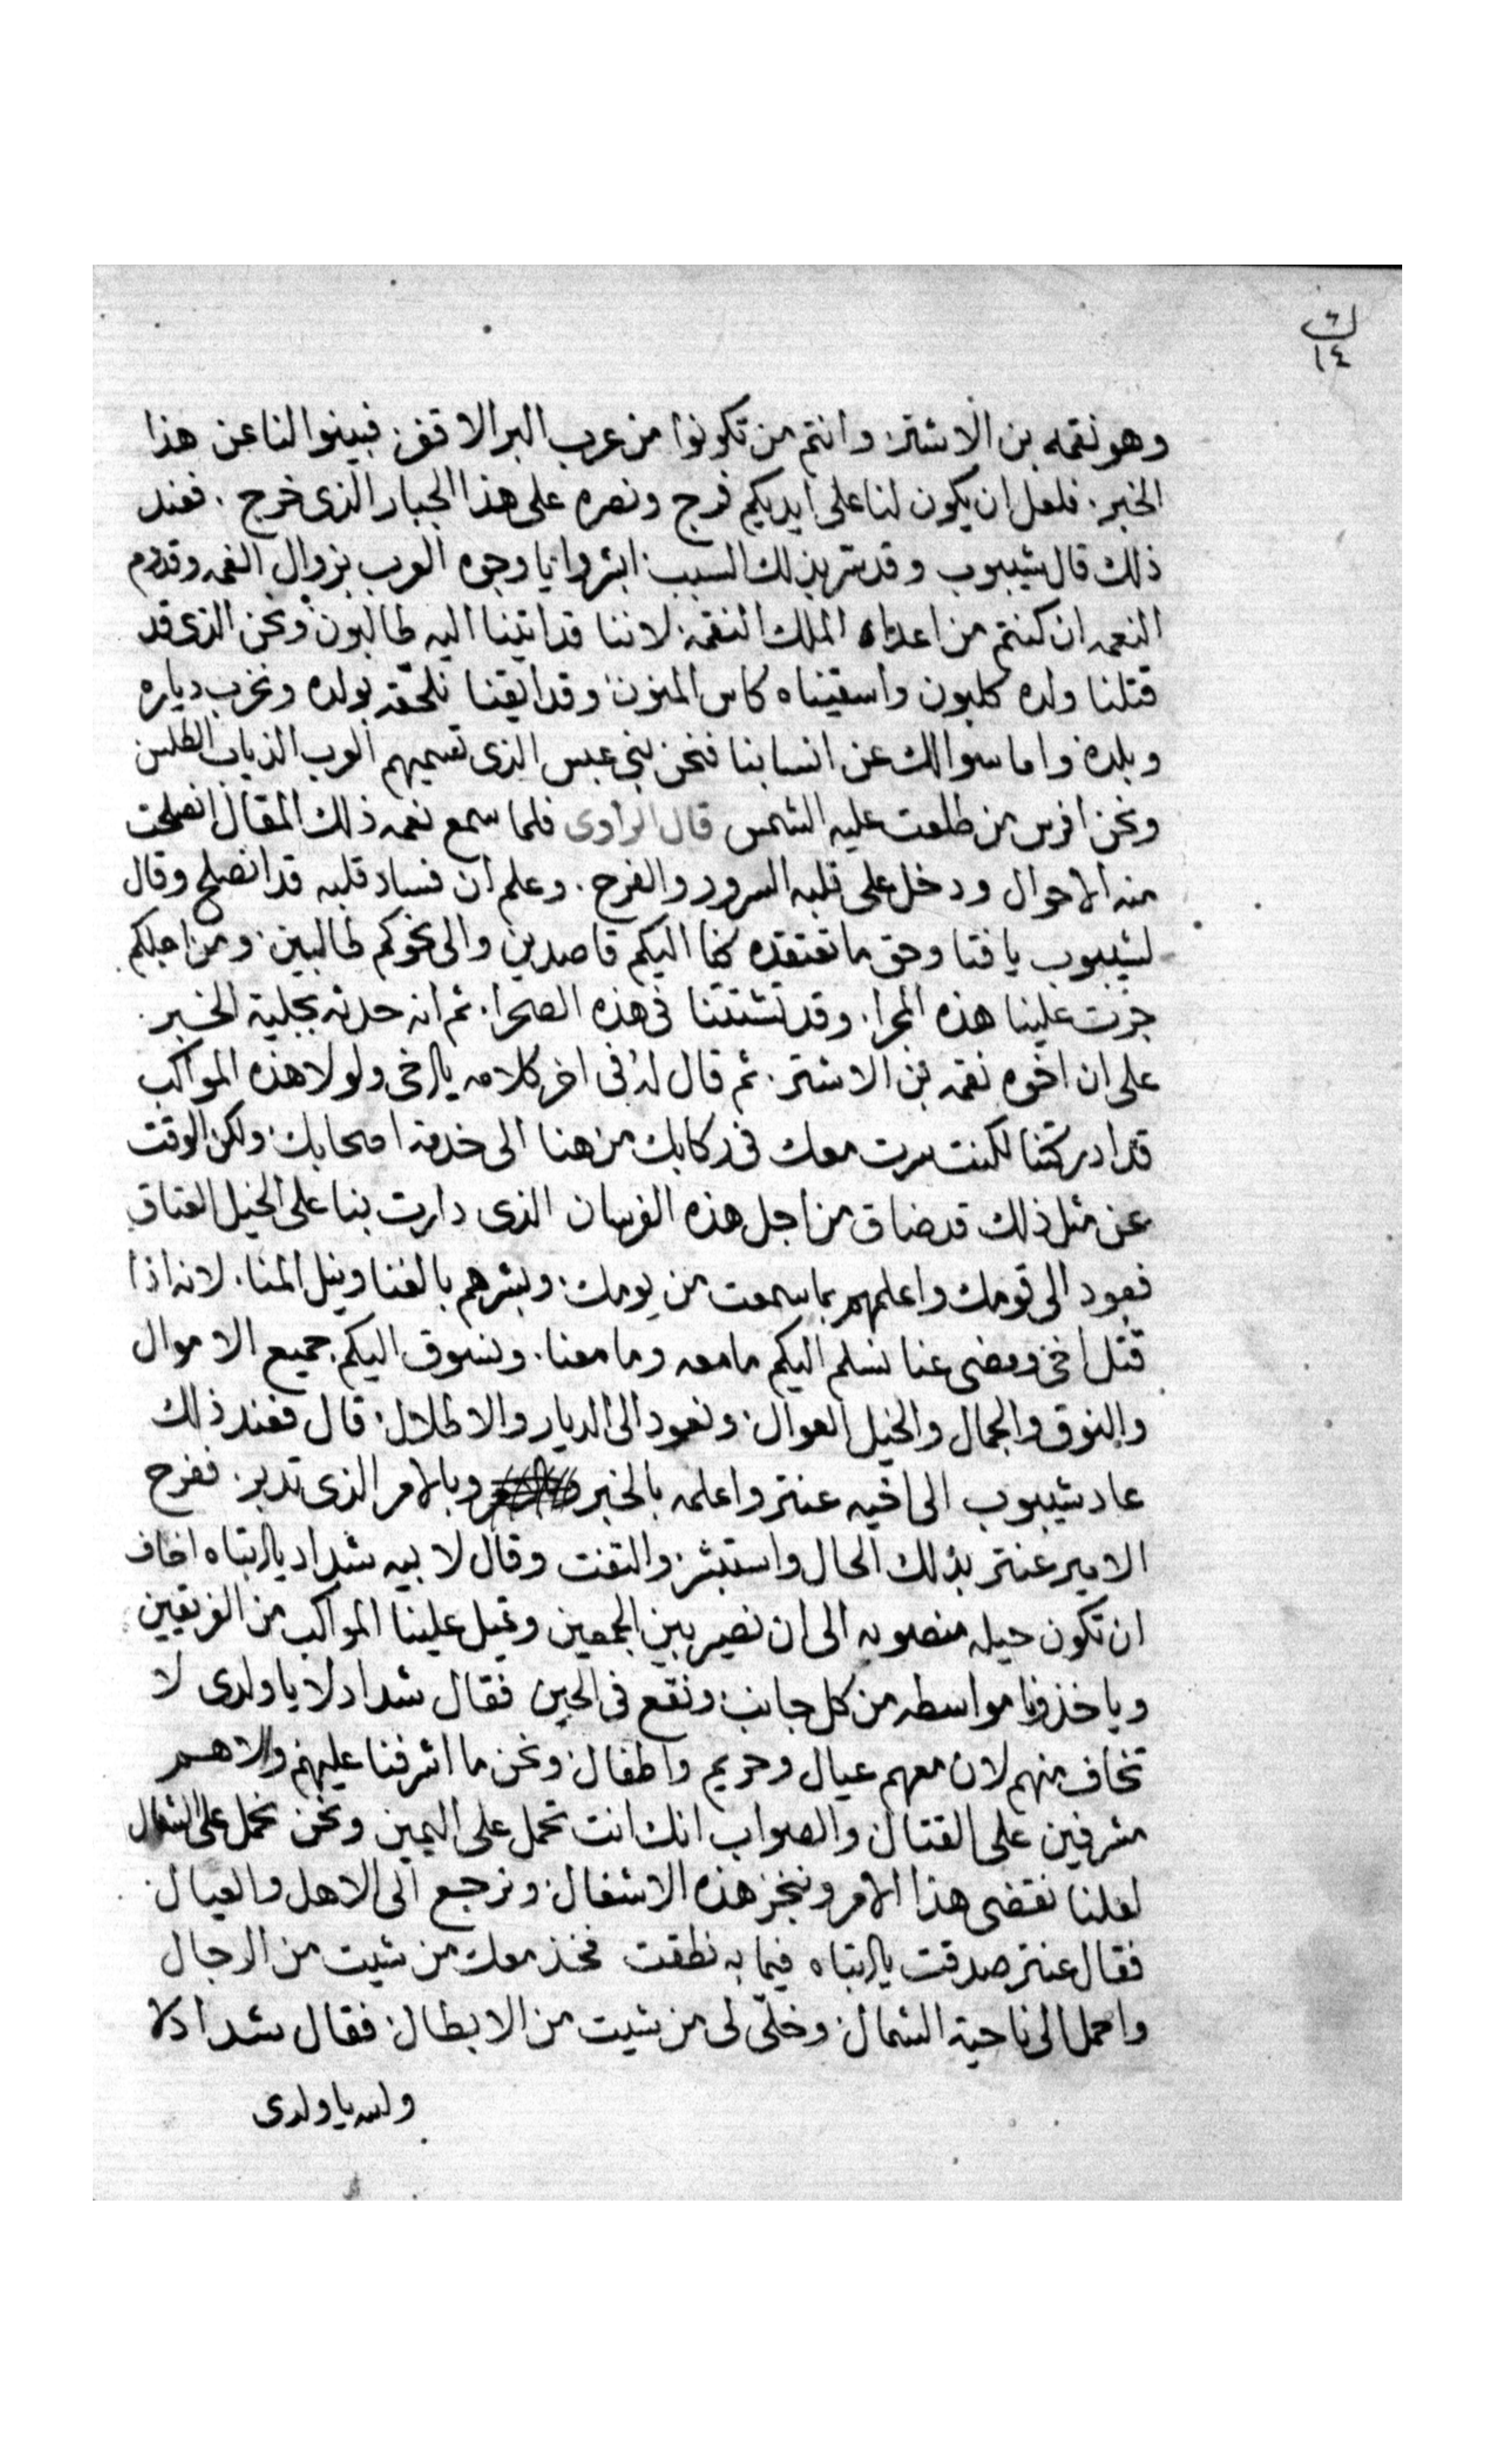 ك
١٤
وهو نقمه بن الاشتر وانتم من تكونوا من عرب البر الاقفر فبينوا لنا عن هذا
الخبر. فلعل ان يكون لنا على ايديكم فرج ونصره على هذا الجبار الذى خرج. فعند
ذلك قال شيبوب وقد سر بذلك السبب ابشروا يا وجوه العرب بزوال الغمه وقدوم
النعمه ان كنتم من اعداء الملك النقمه لاننا قد اتينا اليه طالبون ونحن الذى قد
قتلنا ولده كلبون واسقيناه كاس المنون وقد ابقنا نلحقه بولده ونخرب دياره
وبلده واما سوالك عن انسابنا فنحن بنى عبس الذى تسميهم العرب الذياب الطلس
ونحن افرس من طلعت عليه الشمس قال الراوى فلما سمع نعمه ذلك المقال انصلحت
منه الاحوال ودخل على قلبه السرور والفرح. وعلم ان فساد قلبه قد انصلح وقال
لشيبوب يا فتا وحق ما نعتقده كنا اليكم قاصدين والى نحوكم طالبين ومن اجلكم
جرت علينا هذه المجرا. وقد تشتتنا فى هذه الصحرا. ثم انه حدثه بجلية الخبر.
على ان اخوه نقمه بن الاشتر. ثم قال له فى اخر كلامه يا اخى ولولا هذه المواكب
قد ادركتنا لكنت سرت معك فى ركابك من هنا الى خدمة اصحابك ولكن الوقت
عن مثل ذلك قد ضاق من اجل هذه الفرسان الذى دارت بنا على الخيل العتاق
فعود الى قومك واعلمهم بما سمعت من يومك وبشرهم بالغنا ونيل المنا. لانه اذا
قتل اخى ومضى عنا نسلم اليكم ما معه وما معنا. ونسوق اليكم جميع الاموال
والنوق والجمال والخيل العوال ونعود الى الديار والاطلال قال فعند ذلك
عاد شيبوب الى اخيه عنتر واعلمه بالخبر وبالامر الذى تدبر. ففرح
الامير عنتر بذلك الحال واستبشر والتفت وقال لابيه شداد يا ابتاه اخاف
ان تكون حيله منصوبه الى ان نصير بين الجمعين وتميل علينا المواكب من الفريقين
وياخذونا مواسطه من كل جانب ونقع فى الحين فقال شداد لا يا ولدى لا
تخاف منهم لان معهم عيال وحريم واطفال ونحن ما اشرفنا عليهم والا هم
مشرفين على القتال والصواب انك انت تحمل على اليمين ونحن نحمل على الشمال
لعلنا نقتضى هذا الامر وننجز هذه الاشغال ونرجع الى الاهل والعيال
فقال عنتر صدقت يا ابتاه فيما به نطقت فخذ معك من شيت من الرجال
واحمل الى ناحية الشمال وخلى لى من شيت من الابطال فقال شداد لا
والله يا ولدى